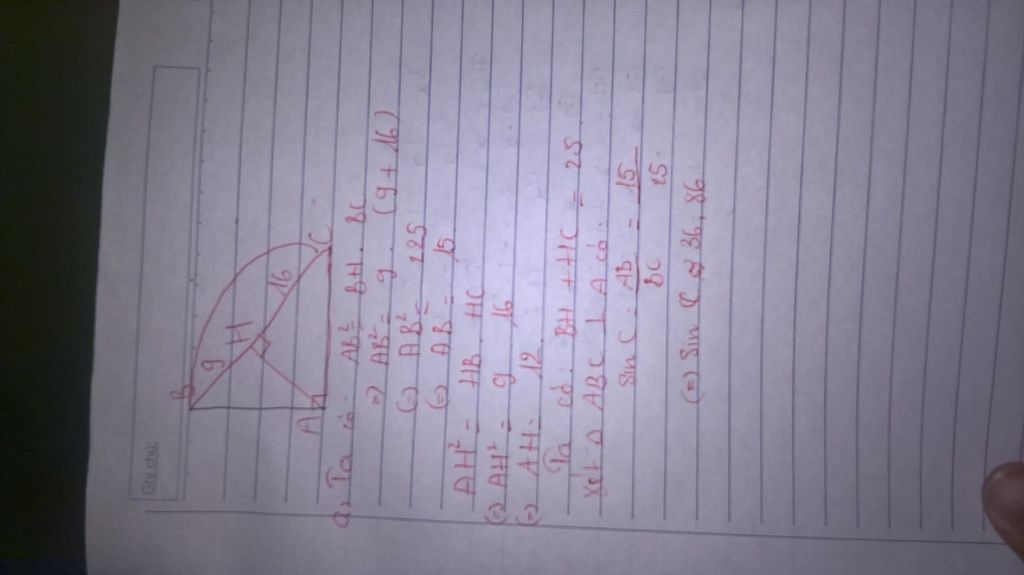 Ghi chú:
B
9
H
16
A
C
a, Ta có: AB² = BH . BC
=> AB² = 9 . (9 + 16)
(=) AB² = 225
(=) AB = 15
AH² = HB . HC
(=) AH² = 9 . 16
(=) AH = 12
Ta có: BH + HC = 25
Xét Δ ABC ⊥ A có:
Sin C = AB/BC = 15/25
(=) Sin C ≈ 36,86